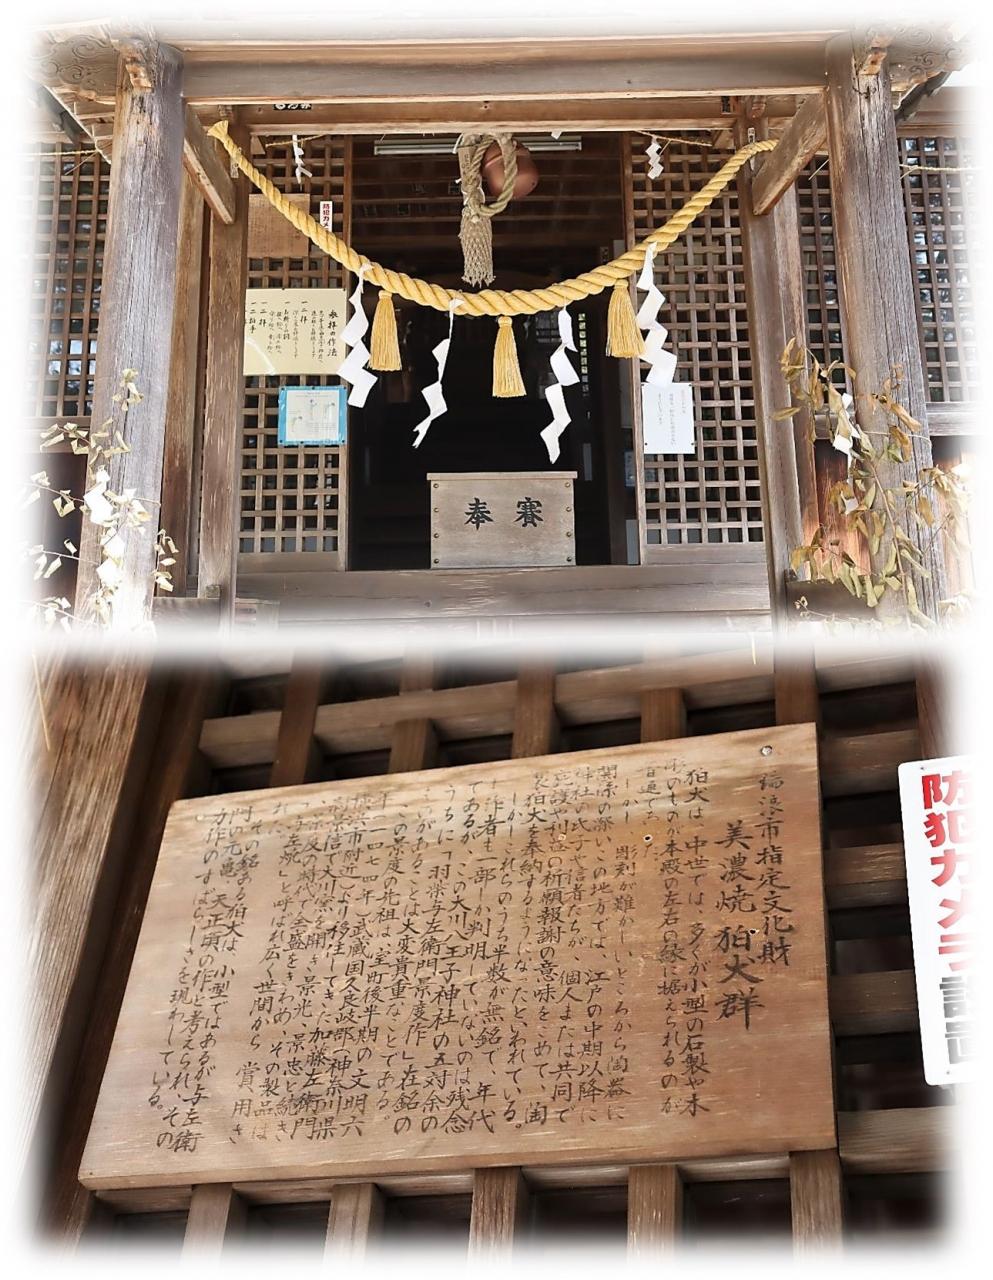 奉賽
参拝の作法
一 二拝
一 二拍手
一 一拝
防犯カメ
瑞浪市指定文化財
美濃焼 狛犬群
狛犬は、中世では、多くが小型の石製や木
彫のものが本殿の左右の縁に据えられるのが
普通でった。
しかし、彫刻が難かしいところから陶器に
関係の深いこの地方では、江戸の中期以降に
神社の氏子や信者たちが、個人または共同で
庇護や利益の祈願報謝の意味をこめて、陶
製狛犬を奉納するようになったといわれている。
しかしこれらのうち半数が無銘で、年代
や作者も一部しか判明していないのは残念
であるが、この大川八王子神社の五対余の
うちに「羽柴与左衛門景度作」在銘の
ものがあることは大変貴重なことである。
この景度の先祖は、室町後半期の文明六
年(一四七四年)武蔵国久良岐郡(神奈川県
横浜市附近)より移住してきた加藤左衛門
尉景信で大川窯を開き景光、景忠と続き
、景度の時代で全盛をきわめ、その製品は
「与左焼」と呼ばれ広く世間から賞用さ
れた。
その銘ある狛犬は、小型ではあるが与左衛
門の元亀、天正頃の作と考えられ、その
力作のすばらしさを現わしている。
防犯カメラ